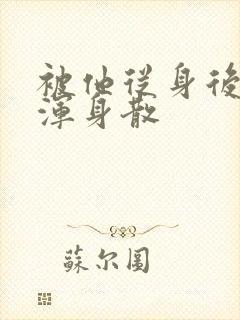 被他從身後
渾身散
蘇尔圆